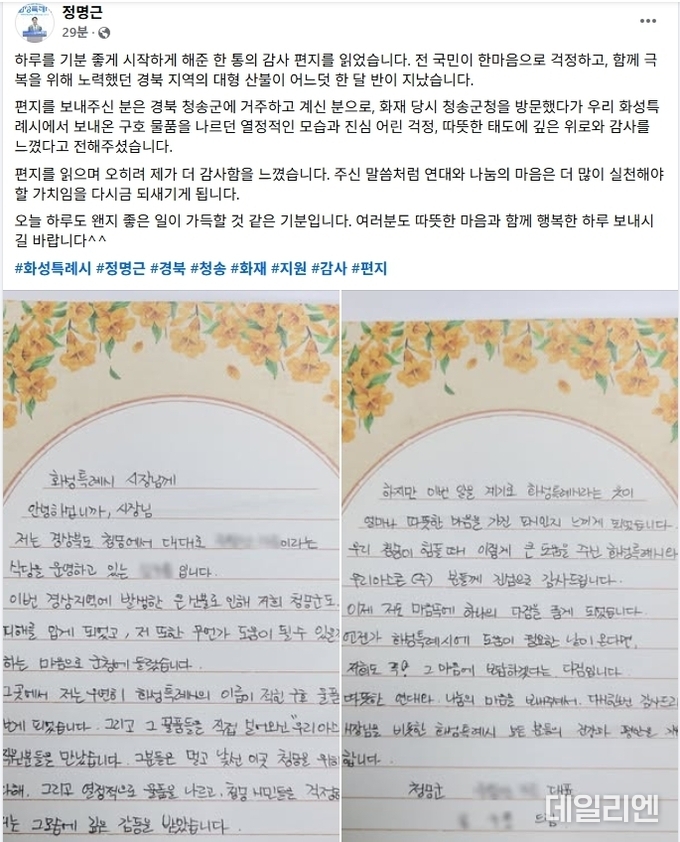 정명근
29분
하루를 기분 좋게 시작하게 해준 한 통의 감사 편지를 읽었습니다. 전 국민이 한마음으로 걱정하고, 함께 극
복을 위해 노력했던 경북 지역의 대형 산불이 어느덧 한 달 반이 지났습니다.
편지를 보내주신 분은 경북 청송군에 거주하고 계신 분으로, 화재 당시 청송군청을 방문했다가 우리 화성특
례시에서 보내온 구호 물품을 나르던 열정적인 모습과 진심 어린 걱정, 따뜻한 태도에 깊은 위로와 감사를
느꼈다고 전해주셨습니다.
편지를 읽으며 오히려 제가 더 감사함을 느꼈습니다. 주신 말씀처럼 연대와 나눔의 마음은 더 많이 실천해야
할 가치임을 다시금 되새기게 됩니다.
오늘 하루도 왠지 좋은 일이 가득할 것 같은 기분입니다. 여러분도 따뜻한 마음과 함께 행복한 하루 보내시
길 바랍니다^^
#화성특례시 #정명근 #경북 #청송 #화재 #지원 #감사 #편지
화성특례시 시장님께
안녕하십니까, 시장님
저는 경상북도 청송에서 대대로 이라는
식당을 운영하고 있는 입니다.
이번 경상지역에 발생한 큰 산불로 인해 저희 청송군도
피해를 입게 되었고, 저 또한 무언가 도움이 될 수 있을까
하는 마음으로 군청에 들렀습니다.
그곳에서 저는 우연히 화성특례시의 이름이 적힌 구호 물품
보게 되었습니다. 그리고 그 물품들을 직접 싣고 온 "우리아스
직원분들을 만났습니다. 그분들은 멀고 낯선 이곳 청송을 위해
다해, 그리고 열정적으로 물품을 나르고, 청송 시민들을 걱정
는 그 모습에 깊은 감동을 받았습니다.
하지만 이번 일을 계기로 화성특례시라는 곳이
얼마나 따뜻한 마음을 가진 도시인지 느끼게 되었습니다.
우리 청송이 힘들 때 이렇게 큰 도움을 주신 화성특례시와
우리아스콘(주) 분들께 진심으로 감사드립니다.
이제 저도 마음속에 하나의 다짐을 품게 되었습니다.
언젠가 화성특례시에 도움이 필요한 날이 온다면,
저희도 꼭! 그 마음에 보답하겠다는 다짐입니다.
따뜻한 연대와 나눔의 마음을 보내주셔서, 다시한번 감사드리
시장님을 비롯한 화성특례시 모든 분들의 건강과 평안을 기
합니다.
청송군 대표
드림
데일리엔